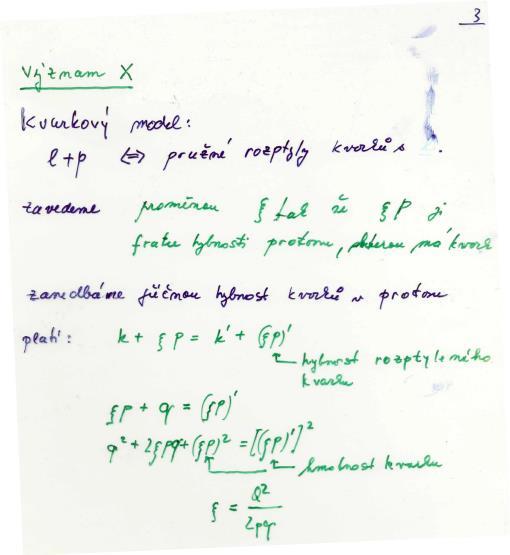 3
Význam X
Kvarkový model:
l+p ⇔ pružné rozptyly kvarků s .
zavedeme proměnou ξ tak že ξP je
fratu hybnosti protonu, kterou má kvark
zanedbáme příčnou hybnost kvarků v protonu
platí: k + ξp = k' + (ξp)'
hybnost rozptýleného
kvarku
ξp + q = (ξp)'
q² + 2ξpq + (ξp)² = [(ξp)']²
hmotnost kvarku
ξ = Q² / 2pq